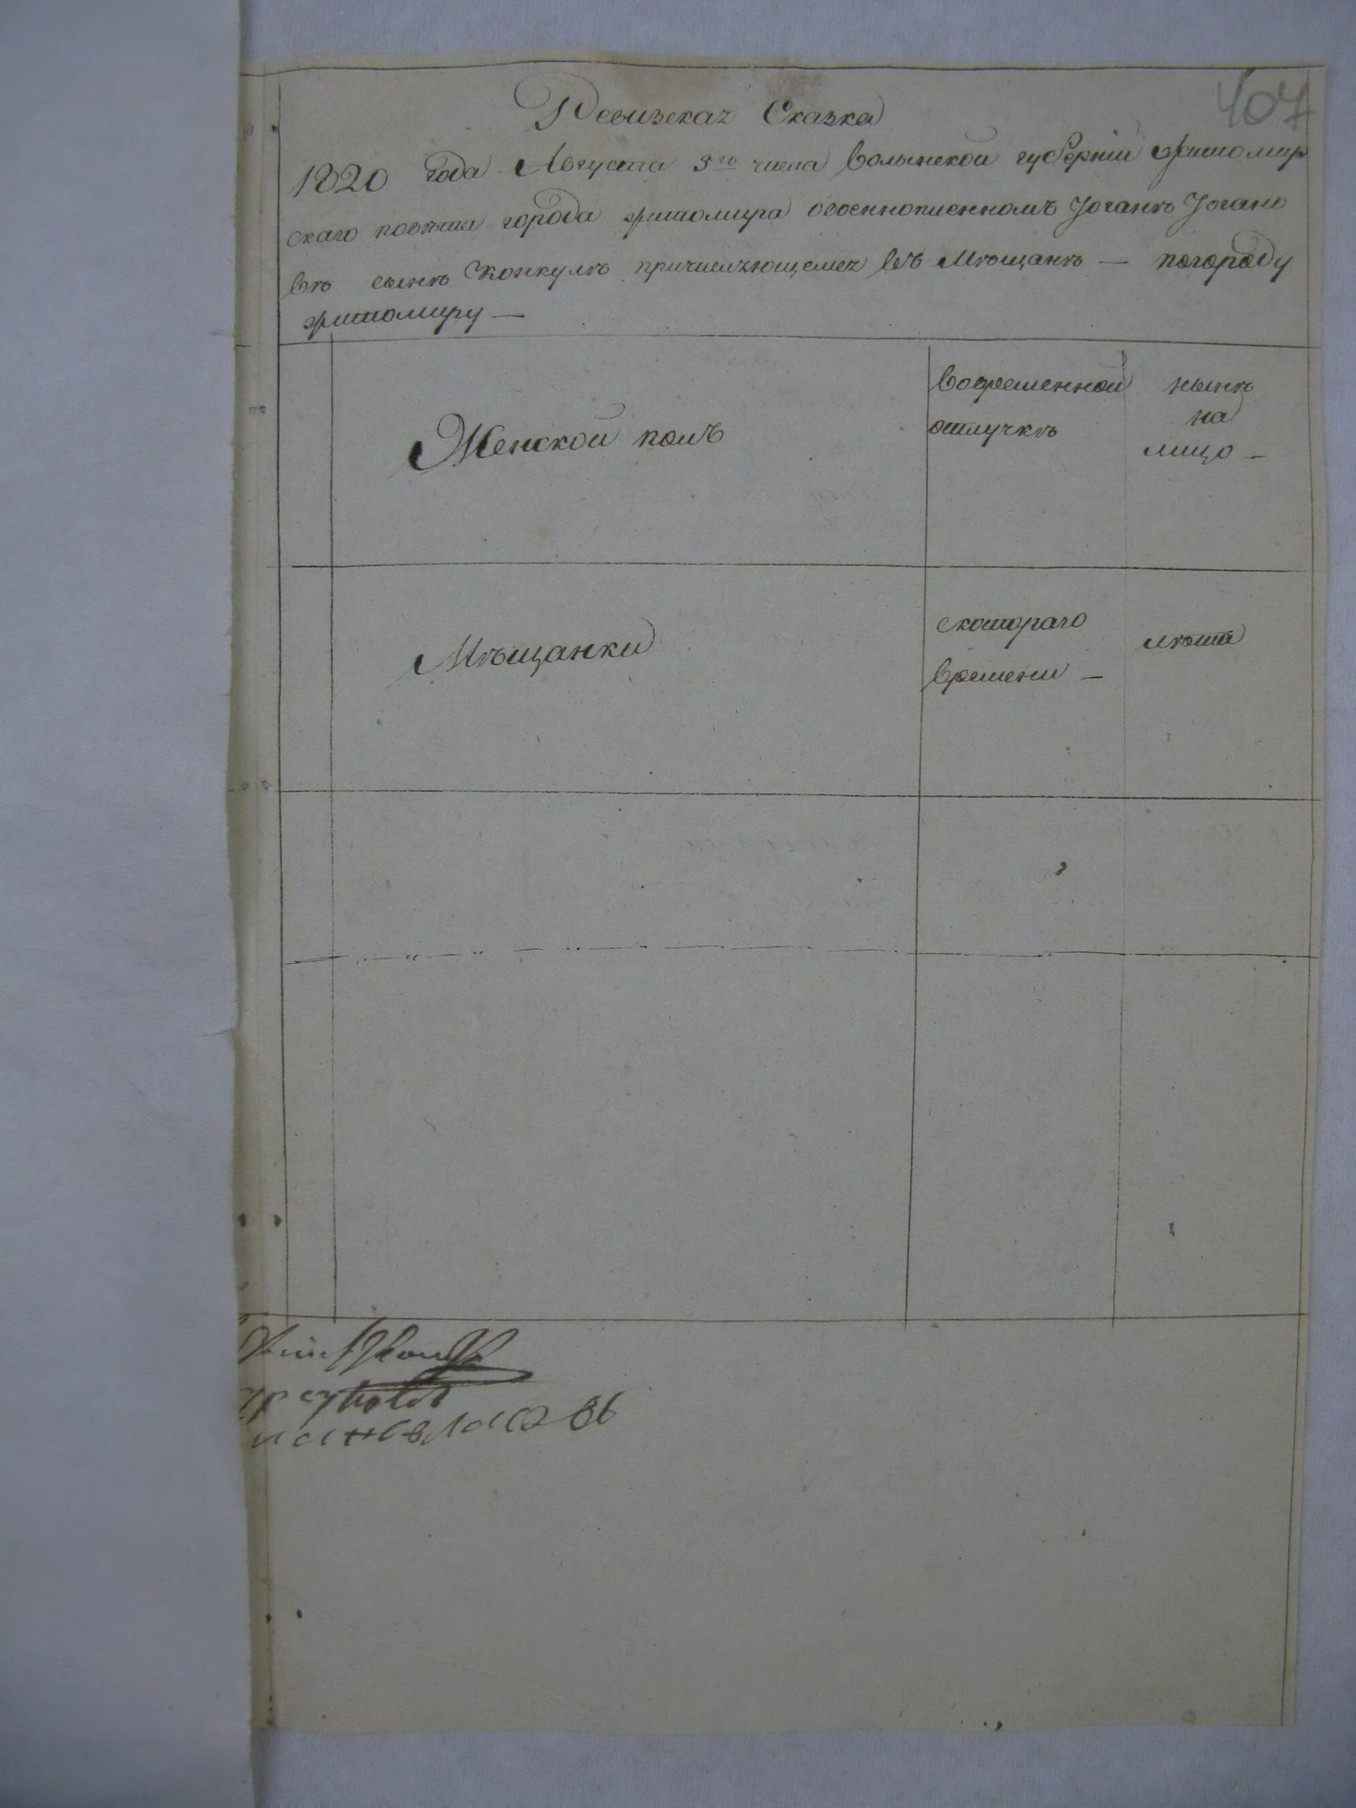 407
Ревизская Сказка
1820 года Августа 3го числа Волынской губернiи Житомир
скаго повѣта города Житомира о военнопленномъ Иоганѣ Иогано
вѣ сынѣ Конкулѣ причисляющемся въ Мѣщанѣ — по городу
Житомиру —
Женской полъ
Во временной отлучкѣ
нынѣ на лицо —
Мѣщанки
с котораго времени —
лѣта